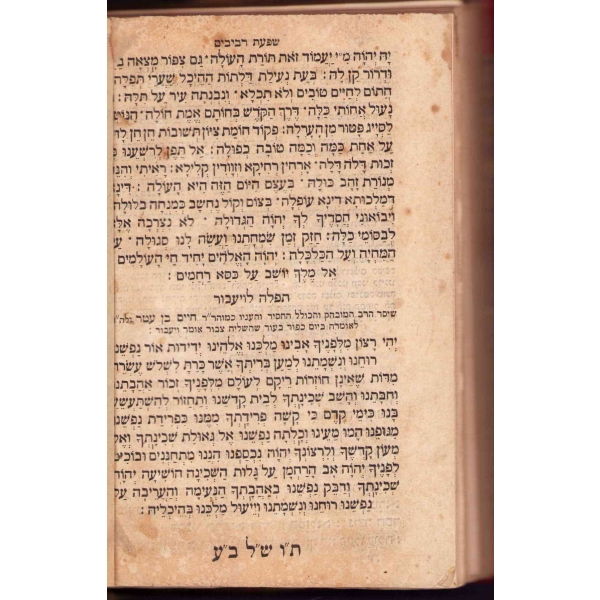 שפעת רביבים
יה יהוה מ״י יעמוד זאת תורת העולה׃ גם צפור מצאה
ודרור קן לה׃ בעת נעילת דלתות ההיכל שערי תפלה
חתום לחיים טובים ולא תכלא׃ ונבנתה עיר על תלה׃
נעול אחותי כלה׃ דרך הקדש בחותם אמת חולה׃
לסייג פטור מן הערלה׃ פקוד חומת ציון תשובות חן חן
על אחת כמה וכמה טובה כפולה׃ אל תפן לרשענו
זכות דלה דלה׃ ארחין רחיקא וזוודין קלילא׃ ראיתי
מנורת זהב כולה׃ בעצם היום הזה היא העולה׃
דמלכותא דינא עופלה׃ בצום וקול נחשב כמנחה בלולה
ויבואוני חסדיך לך יהוה הגדולה׃ לא נצרכה
לבסומי כלה׃ חזק זמן שמחתנו ועשה לנו סגולה׃
המחיה ועל הכלכלה׃ יהוה האלהים יחיד חי העולמים
אל מלך יושב על כסא רחמים׃
תפלה לויעבור
שיסד הרב המובהק והכולל החסיד והעניו כמוהר״ר חיים בן עטר
לאומרה ביום כפור בעוד שהשליח צבור אומר ויעבור׃
יהי רצון מלפניך אבינו מלכנו אלהינו ידידות אור נפשנו
רוחנו ונשמתנו למען בריתך אשר כרת לשלש עשרה
מדות שאינן חוזרות ריקם לעולם מלפניך זכור אהבתנו
וחבתנו והשב שכינתך לבית קדשנו ותחזור להשתעשע
בנו כימי קדם כי קשה פרידתך ממנו כפרידת נפשנו
מגופנו המו מעינו וכלתה נפשנו אל גאולת שכינתך
מעון קדשך ולרצונך יהוה נכספנו הננו מתחננים
לפניך יהוה אב הרחמן על גלות השכינה הושיעה יהוה
שכינתך ודבק נפשנו באהבתך הנעימה והעריבה על
נפשנו רוחנו ונשמתנו וייעול מלכנו בהיכליה׃
ת״ו ש״ל ב״ע